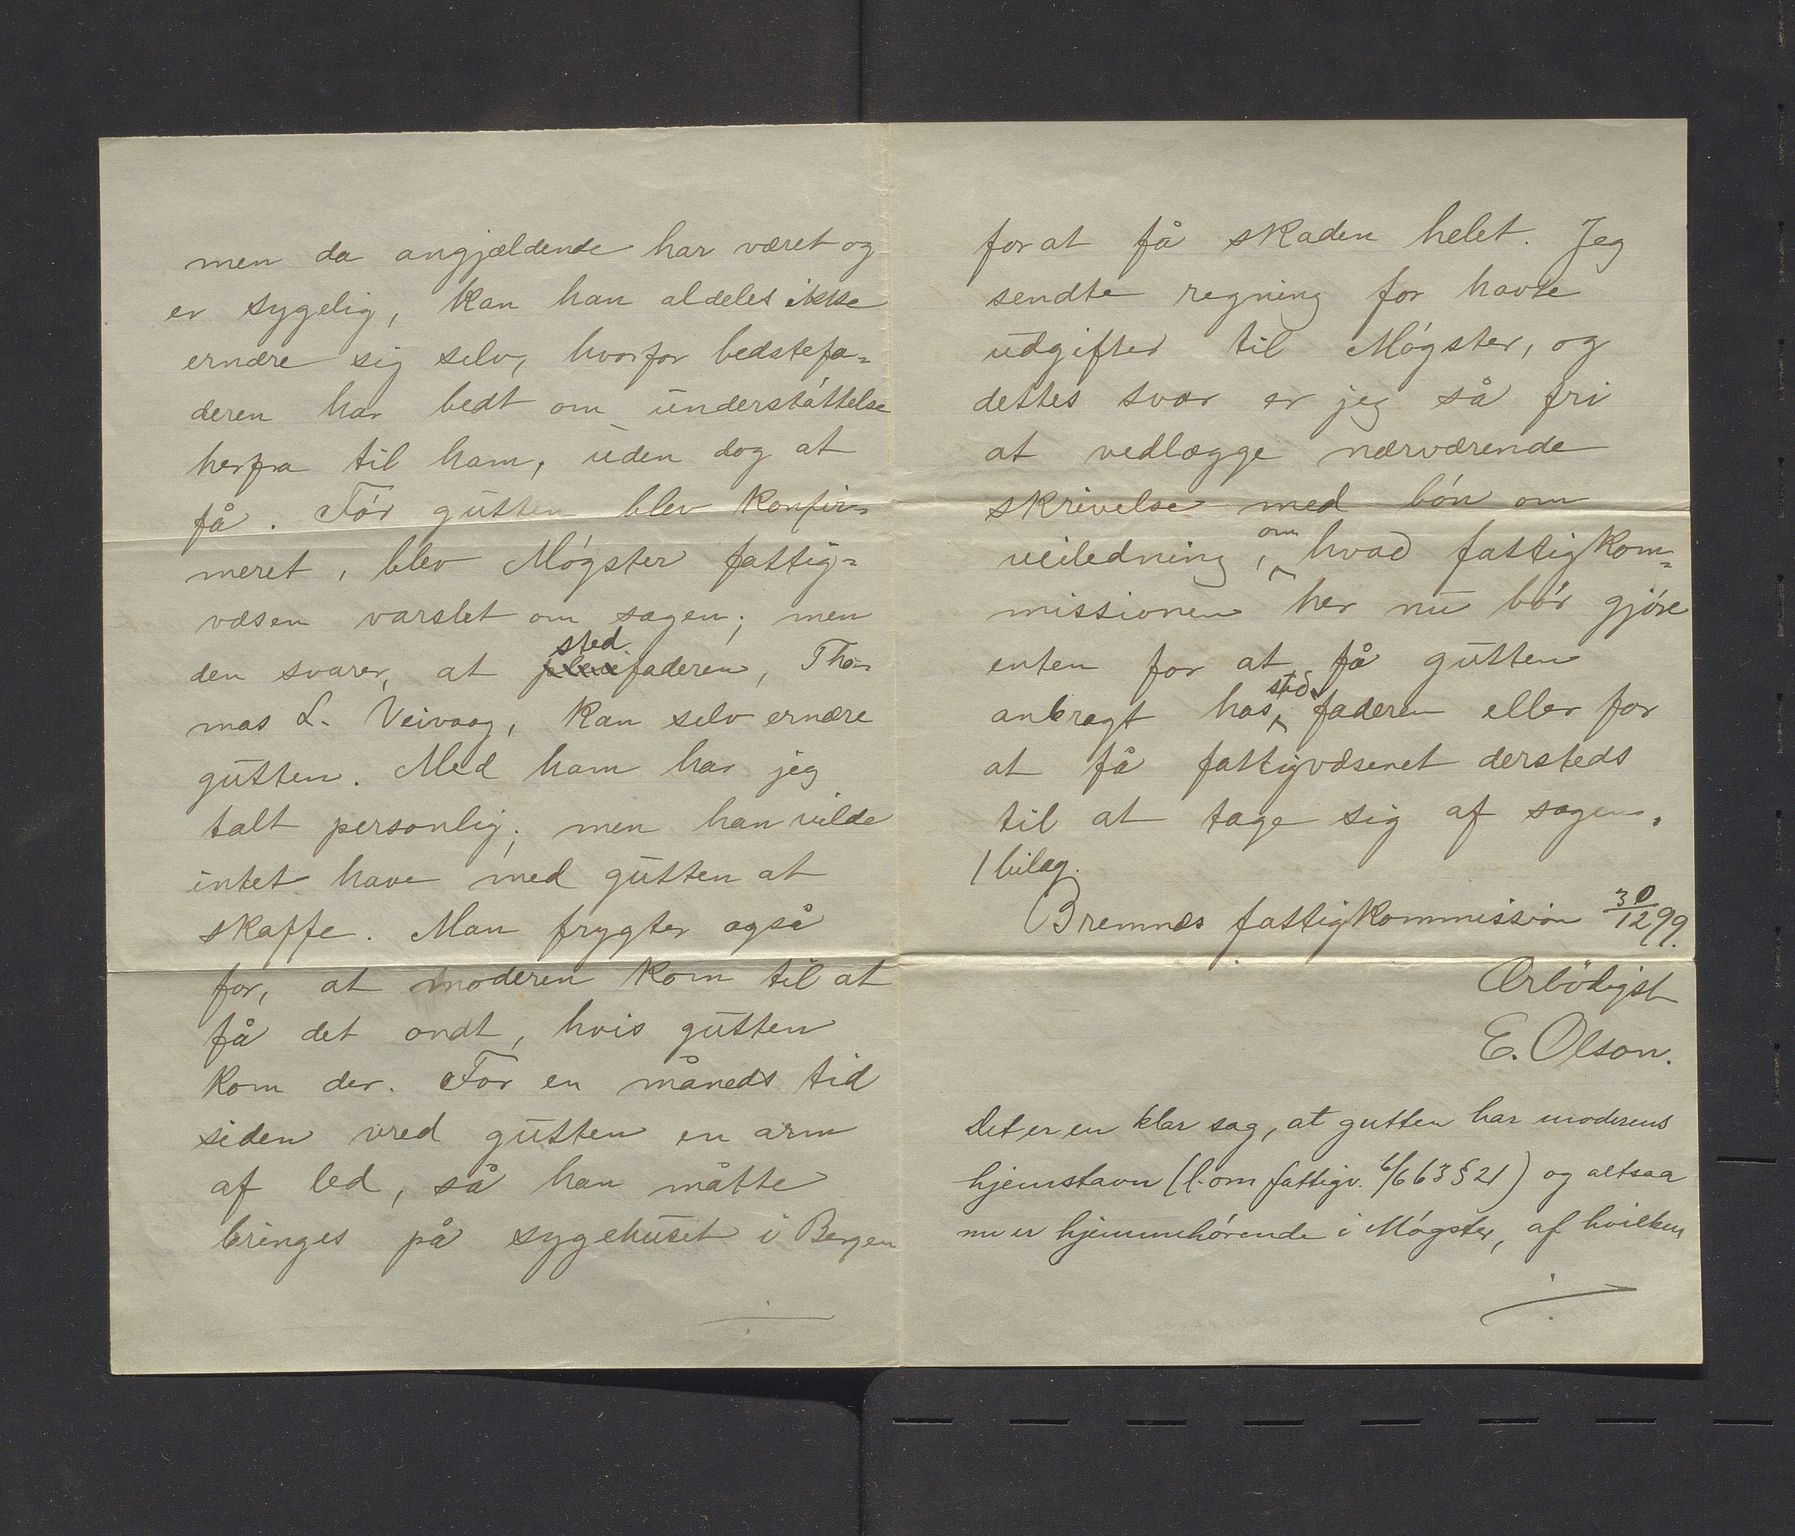 men da angjældende har været og
er sygelig, kan han aldeles ikke
ernære sig selv, hvorfor bedstefa=
deren har bedt om understøttelse
herfra til ham, uden dog at
få. Før gutten blev konfir=
meret, blev Møgster fattig=
væsen varslet om sagen; men
den svarer, at stedfaderen, Tho=
mas L. Veivaag, kan selv ernære
gutten. Med ham har jeg
talt personlig; men han vilde
intet have med gutten at
skaffe. Man frygter også
for, at moderen kom til at
få det ondt, hvis gutten
kom der. For en måneds tid
siden vred gutten en arm
af led, så han måtte
bringes på sygehuset i Bergen
forat få skaden helet. Jeg
sendte regning for havte
udgifter til Møgster, og
dettes svar er jeg så fri
at vedlægge nærværende
skrivelse med bøn om
veiledning, om hvad fattigkom=
missionen her nu bør gjøre
enten for at få gutten
anbragt hos stedfaderen eller for
at få fattigvæsenet dersteds
til at tage sig af sagen.
1 bilag.
Bremnes fattigkommission 30/12 99.
Ærbödigst
E. Olson.
Det er en klar sag, at gutten har moderens
hjemstavn (l. om fattigv. 6/6 63 § 21) og altsaa
nu er hjemmehørende i Møgster, af hvilken